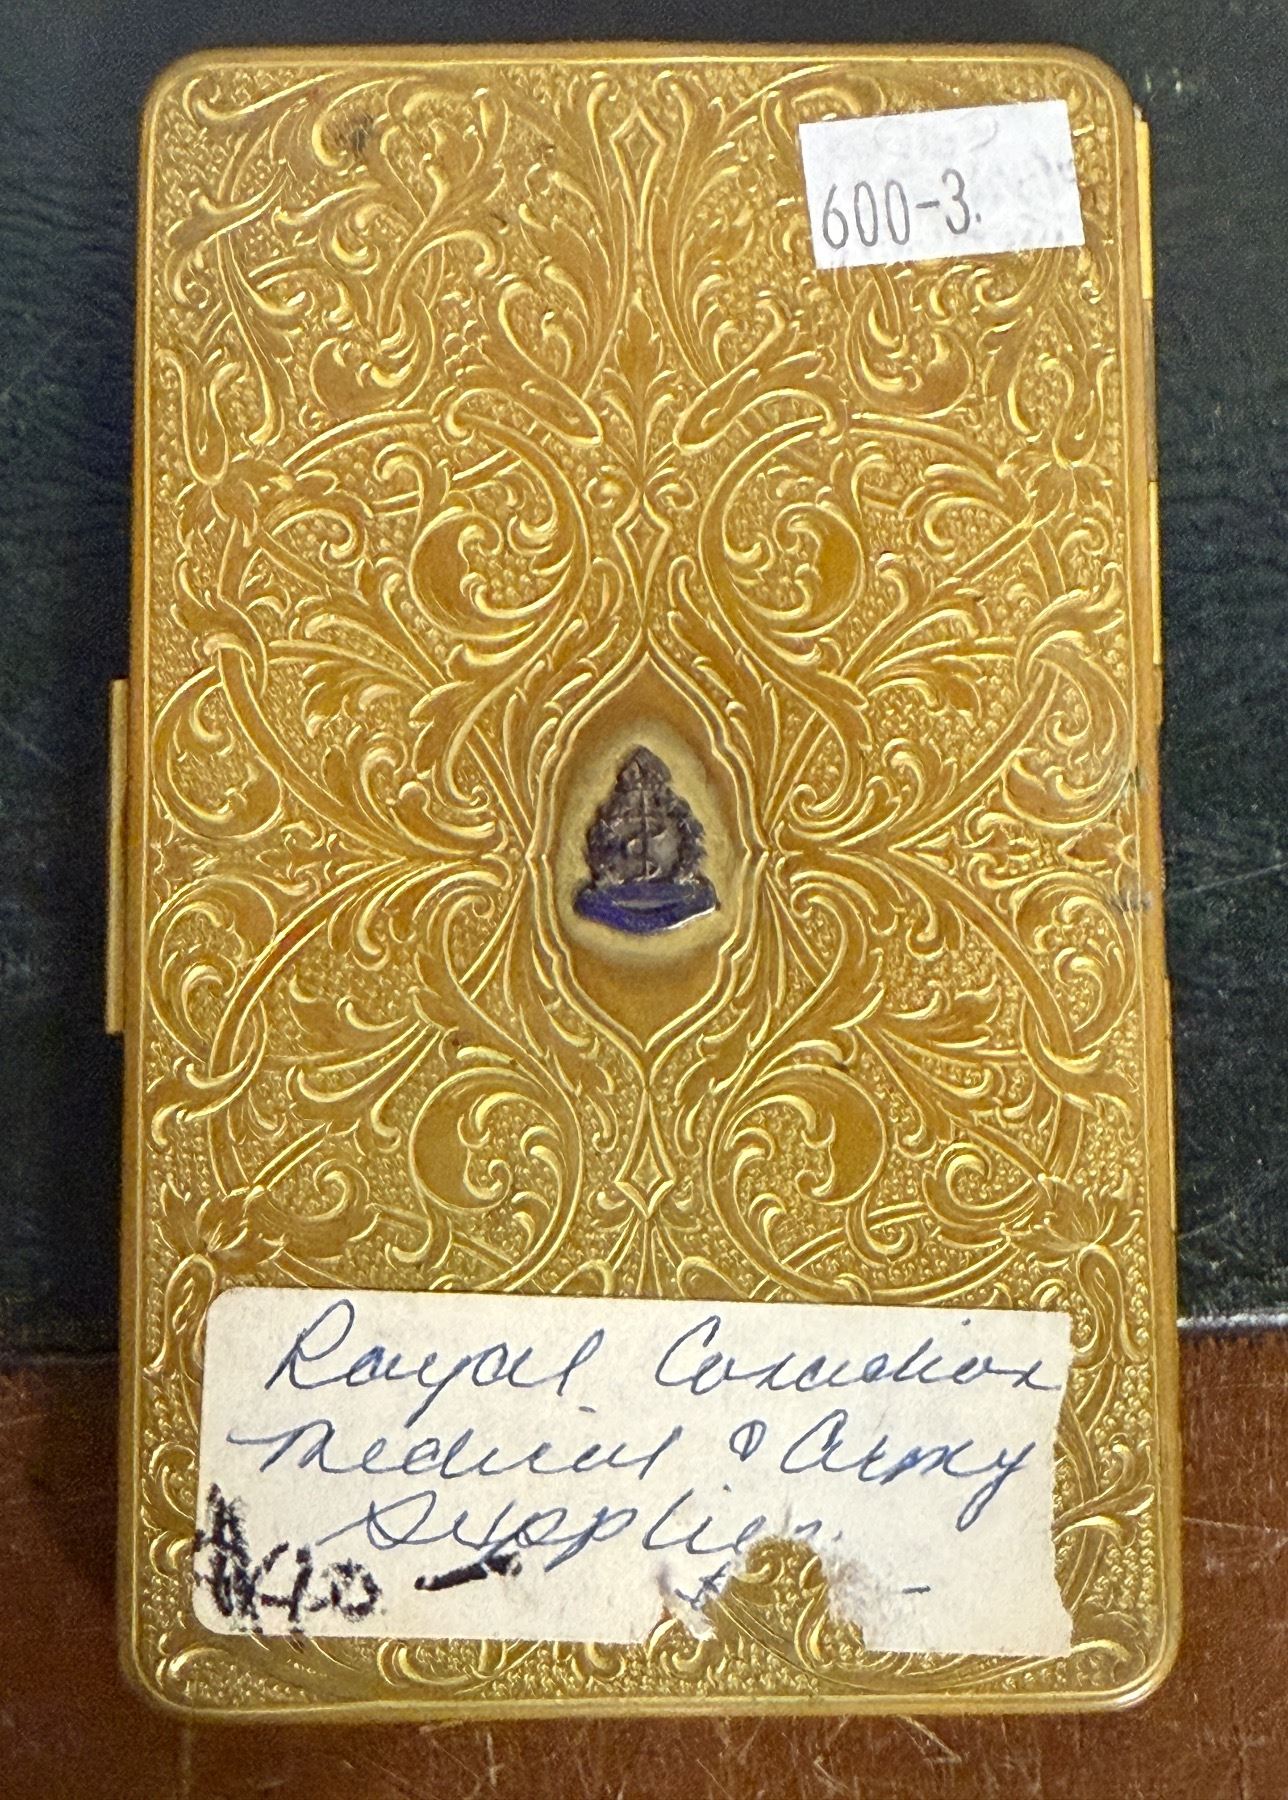 600-3.
Royal Canadian
Medical & Army
Supplies